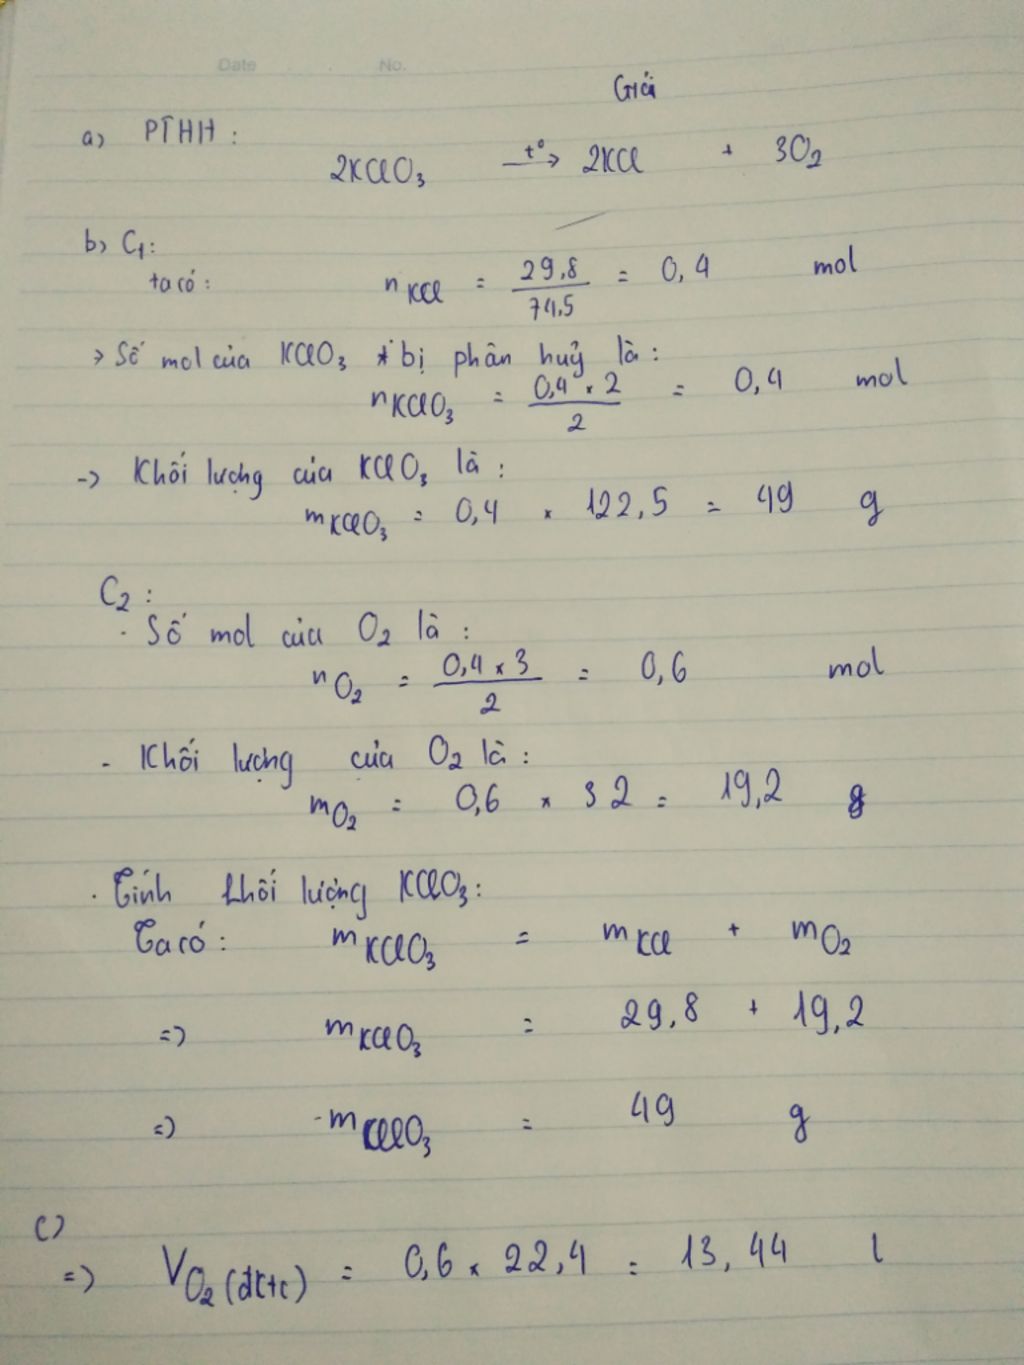 Date No.
Giải
a) PTHH :
2KClO₃ —t°→ 2KCl + 3O₂
b) C₁:
ta có : nKCl = 29,8/74,5 = 0,4 mol
→ Số mol của KClO₃ bị phân huỷ là :
nKClO₃ = 0,4 × 2/2 = 0,4 mol
→ Khối lượng của KClO₃ là :
mKClO₃ = 0,4 × 122,5 = 49 g
C₂ :
- Số mol của O₂ là :
nO₂ = 0,4 × 3/2 = 0,6 mol
- Khối lượng của O₂ là :
mO₂ = 0,6 × 32 = 19,2 g
- Tính khối lượng KClO₃ :
Ta có : mKClO₃ = mKCl + mO₂
=> mKClO₃ = 29,8 + 19,2
=> mKClO₃ = 49 g
c)
=> VO₂ (đktc) = 0,6 × 22,4 = 13,44 l